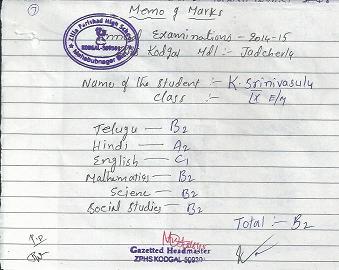 7
Memo of Marks
Zilla Parishad High School
KODGAL-509380
Mahabubnagar
Annual Examinations - 2014-15
Kodgal Mdl :- Jadcherla
Name of the student :- K. Srinivasulu
Class :- IX E/M
Telugu — B2
Hindi — A2
English — C1
Mathematics — B2
Science — B2
Social Studies — B2
Total :- B2
Gazetted Headmaster
ZPHS KODGAL-50930